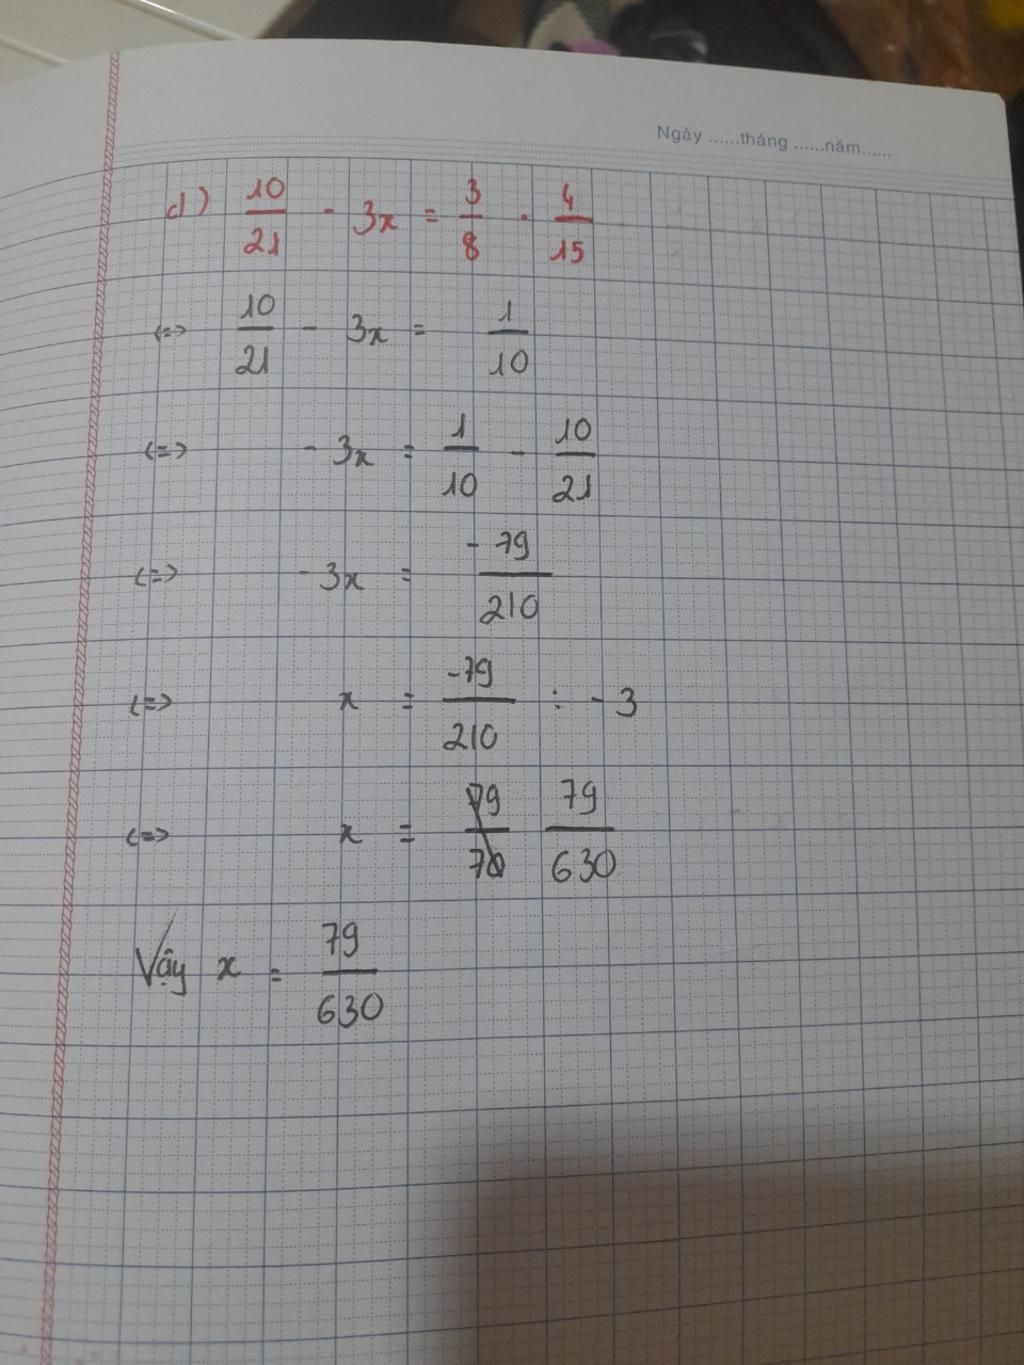 Ngày ......tháng ......năm......
d) 10/21 - 3x = 3/8 . 4/15
<=> 10/21 - 3x = 1/10
<=> - 3x = 1/10 - 10/21
<=> - 3x = -79/210
<=> x = -79/210 : - 3
<=> x = 79/70 79/630
Vậy x = 79/630